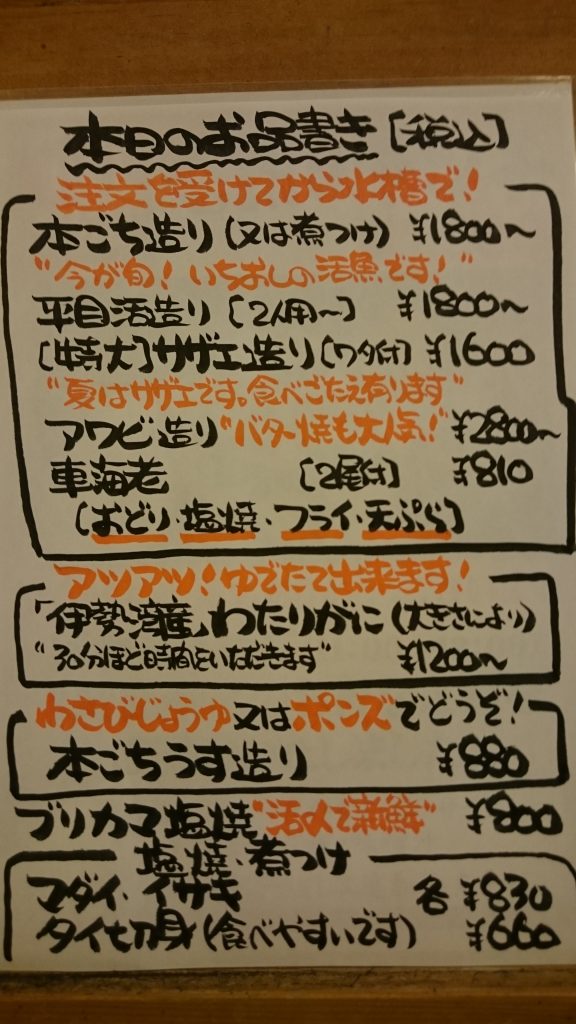 本日のお品書き [税込]
注文を受けてから水槽で!
本ごち造り(又は煮つけ) ¥1800〜
"今が旬! いちおしの活魚です!"
平目活造り [2人用〜] ¥1800〜
[特大]サザエ造り[ワタ付] ¥1600
"夏はサザエです。食べごたえ有ります"
アワビ造り"バター焼も大人気!" ¥2800〜
車海老 [2尾付] ¥810
[おどり・塩焼・フライ・天ぷら]
アツアツ!ゆでたて出来ます!
「伊勢湾産」わたりがに(大きさにより)
"30分ほど時間をいただきます" ¥1200〜
わさびじょうゆ又はポンズでどうぞ!
本ごちうす造り ¥880
ブリカマ塩焼"活〆で新鮮" ¥800
塩焼・煮つけ
マダイ・イサキ 各 ¥830
タイ切身(食べやすいです) ¥660